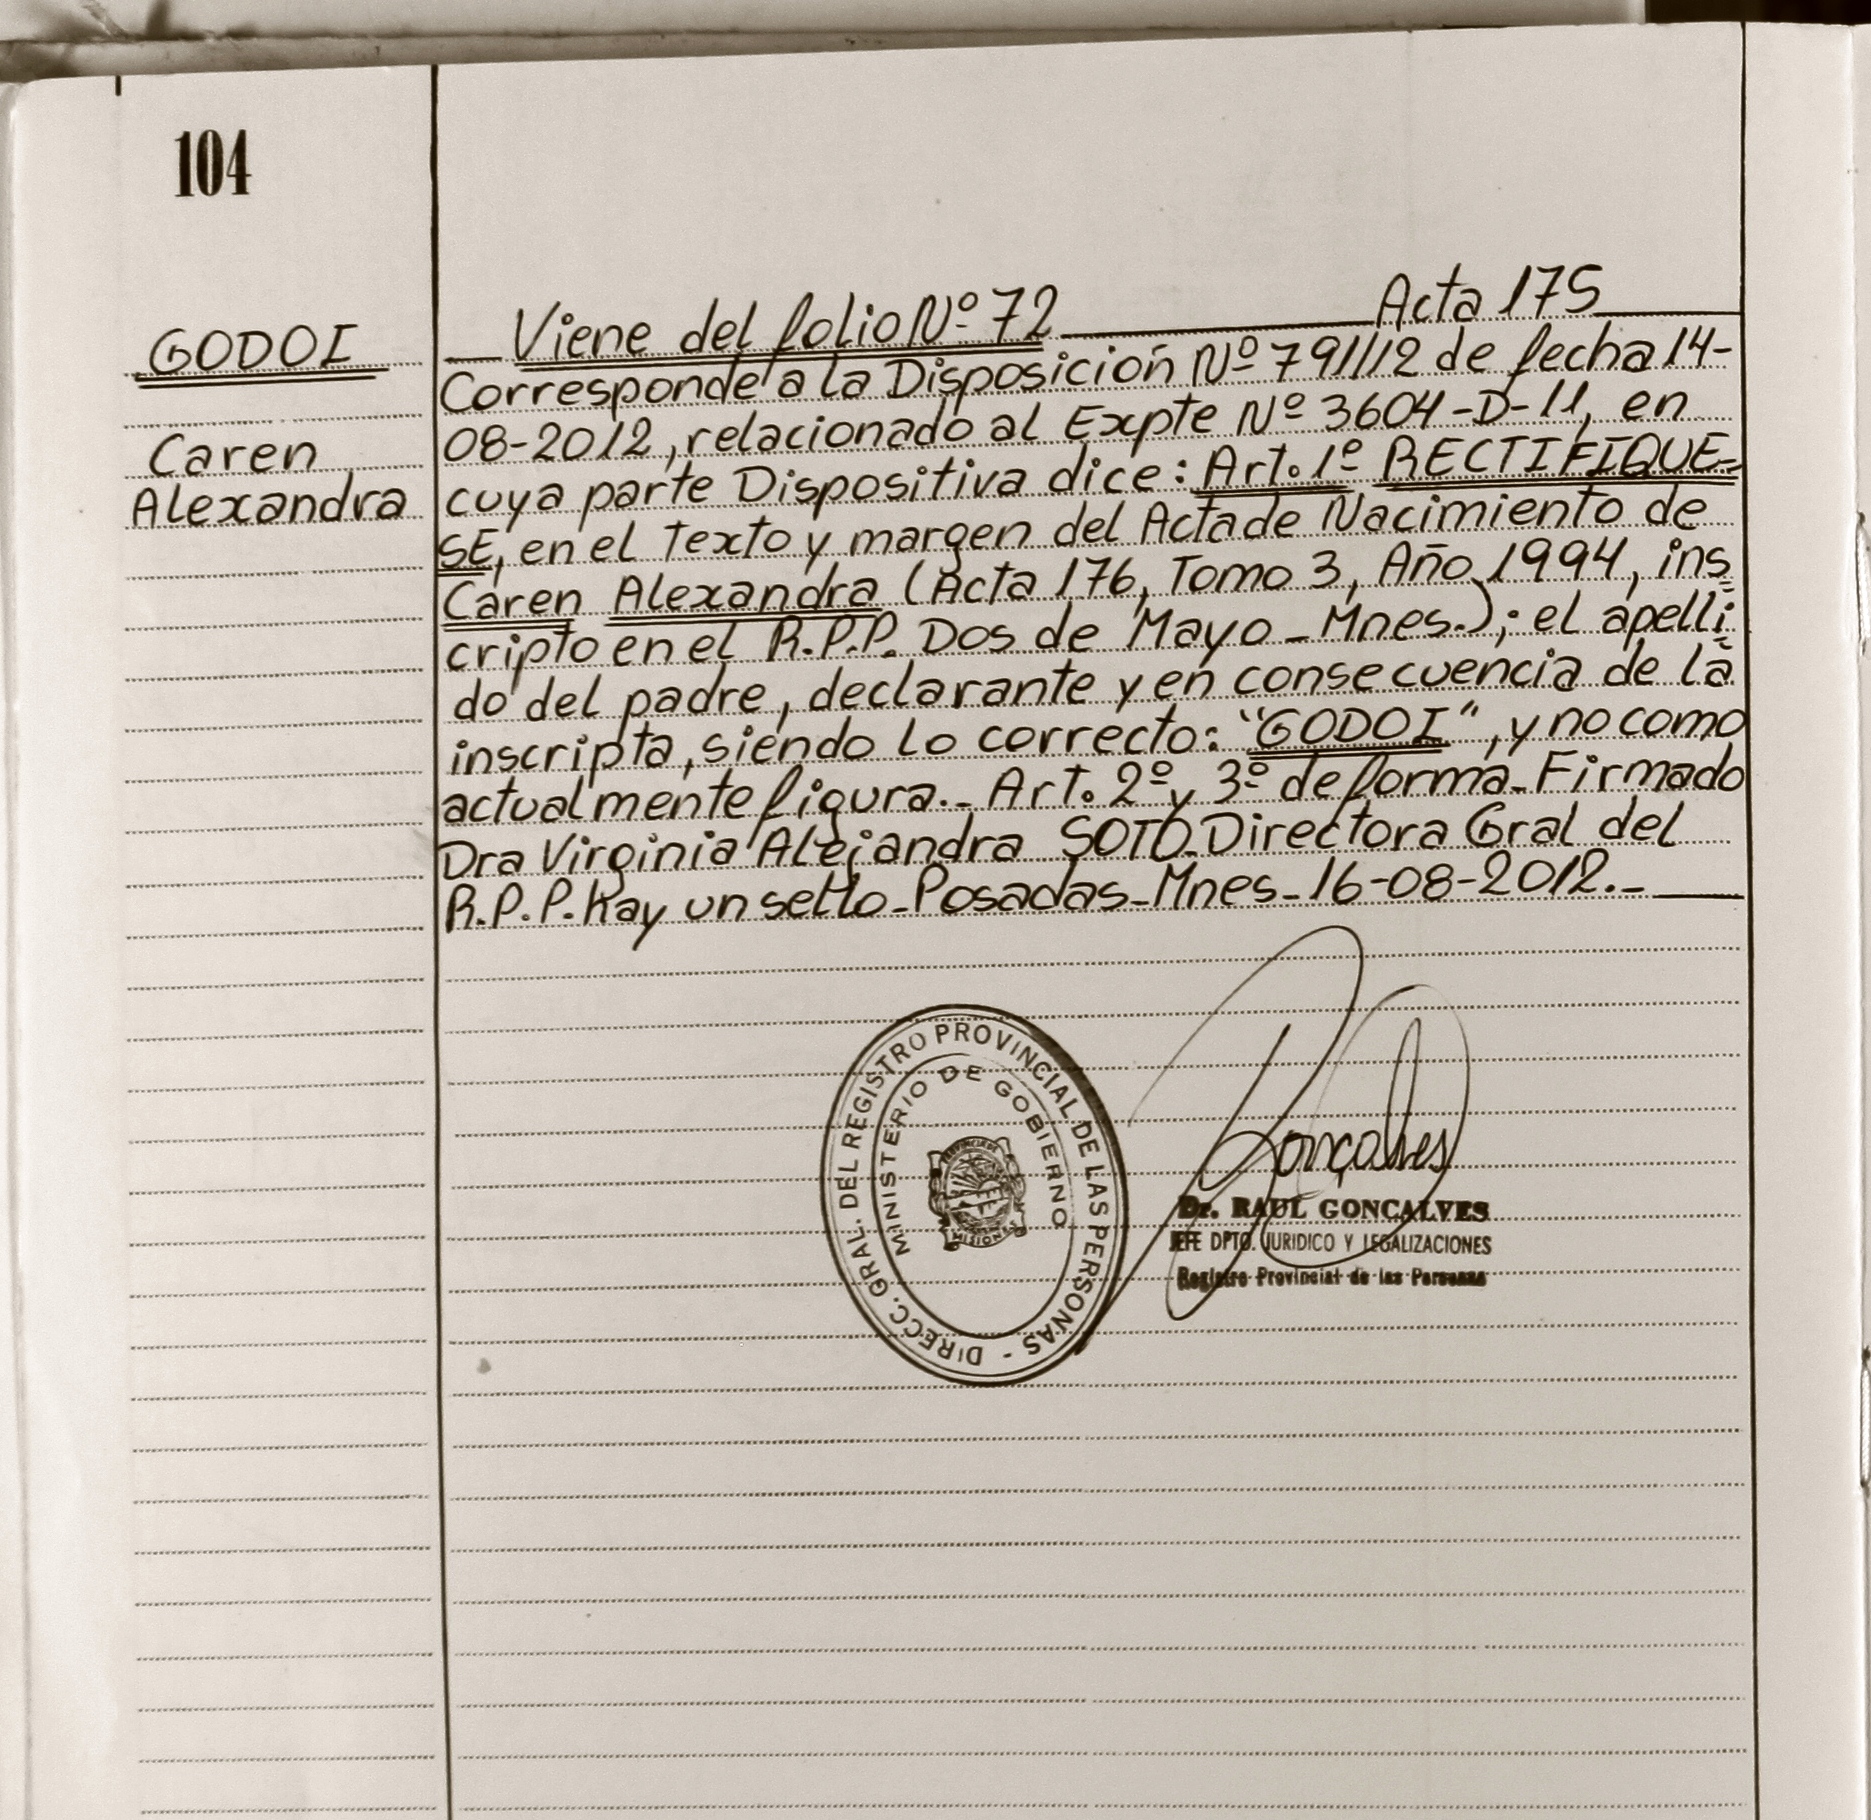 104
GODOI
Caren
Alexandra
Viene del folio Nº 72 Acta 175
Corresponde a la Disposición Nº 791/12 de fecha 14-
08-2012, relacionado al Expte Nº 3604-D-11, en
cuya parte Dispositiva dice: Art. 1º RECTIFIQUE-
SE, en el Texto y margen del Acta de Nacimiento de
Caren Alexandra (Acta 176, Tomo 3, Año 1994, ins
cripto en el R.P.P. Dos de Mayo - Mnes.); el apelli
do del padre, declarante y en consecuencia de la
inscripta, siendo lo correcto: "GODOI", y no como
actualmente figura.- Art. 2º y 3º de forma - Firmado
Dra Virginia Alejandra SOTO - Directora Gral del
R.P.P. Hay un sello - Posadas - Mnes - 16-08-2012.-
DIRECC. GRAL. DEL REGISTRO PROVINCIAL DE LAS PERSONAS -
MINISTERIO DE GOBIERNO
MISIONES
Gonçalves
Dr. RAUL GONCALVES
JEFE DPTO. JURIDICO Y LEGALIZACIONES
Registro Provincial de las Personas